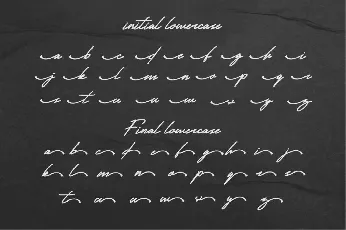 initial lowercase
a b c d e f g h i
j k l m n o p q r
s t u v w x y z
Final lowercase
a b c d e f g h i j
k l m n o p q r s
t u v w x y z